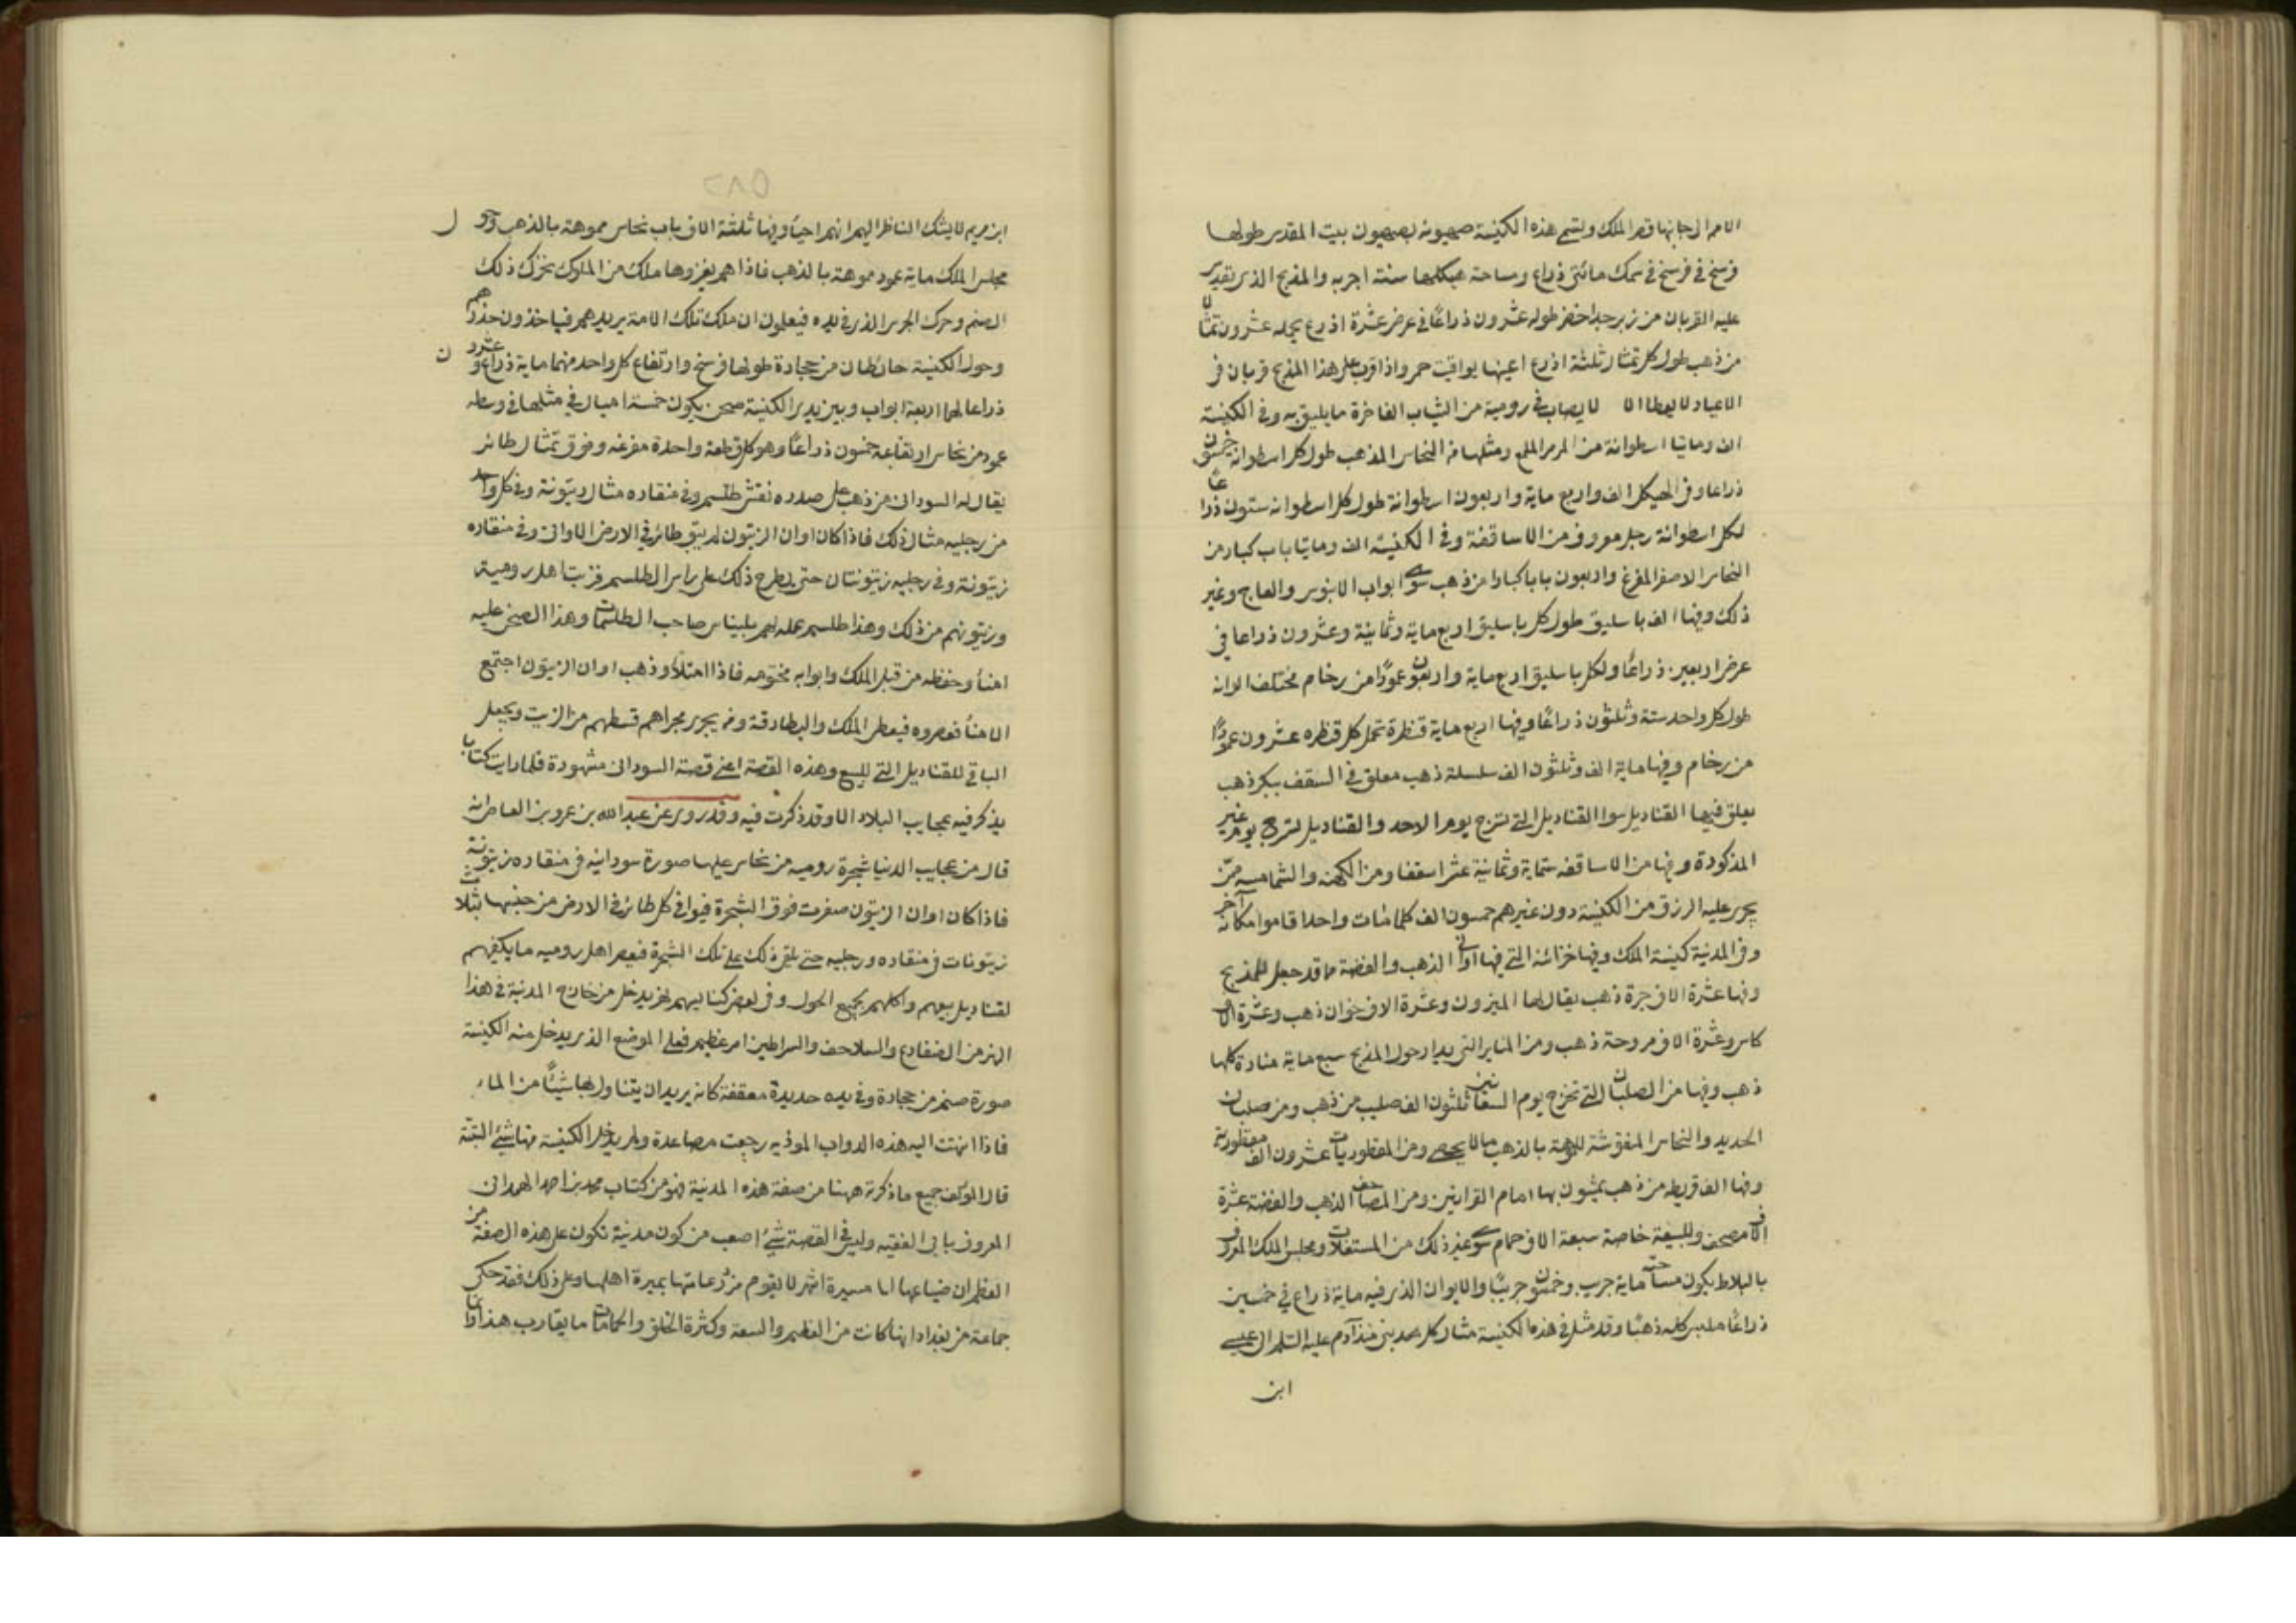 الامم الى جانبها قصر الملك وتسمى هذه الكنيسة صهيونه بصهيون بيت المقدس طولها
فرسخ في فرسخ في سمك مائتى ذراع ومساحة هيكلها ستة اجربه والمذبح الذى يقدس
عليه القربان من زبرجد اخضر طوله عشرون ذراعًا في عرض عشرة اذرع يحمله عشرون تمثالا
من ذهب طول كل تمثال ثلثة اذرع اعينها يواقيت حمر واذا قرب على هذا المذبح قربان في
الاعياد لا يطفا الا لا يصاب في رومية من الثياب الفاخرة ما يليق به وفى الكنيسة
الف ومايتا اسطوانة من المرمر الملمع ومثلها من النحاس المذهب طول كل اسطوانة خمسون
ذراعا وفى الهيكل الف واربع ماية واربعون اسطوانة طول كل اسطوانه ستون ذراعًا
لكل اسطوانة رجل معروف من الاساقفة وفى الكنيسة الف ومايتا باب كبار من
النحاس الاصفر المفرغ واربعون بابا كبارا من ذهب سوى ابواب الابنوس والعاج وغير
ذلك وفيها الف باسليق طول كل باسليق اربع ماية وثمانية وعشرون ذراعا في
عرض اربعين ذراعًا ولكل باسليق اربع ماية واربعون عمودًا من رخام مختلف الوانه
طول كل واحد ستة وثلثون ذراعًا وفيها اربع ماية قنطرة تحمل كل قنطره عشرون عمودًا
من رخام وفيها ماية الف وثلثون الف سلسلة ذهب معلق في السقف ببكر ذهب
يعلق فيها القناديل سوا القناديل التى تسرج يوم الاحد والقناديل تسرج يوم غير
المذكورة وفيها من الاساقفه ستماية وثمانية عشر اسقفا ومن الكهنه والشمامسه ممن
يجرى عليه الرزق من الكنيسة دون غيرهم خمسون الف كلما مات واحد اقاموا مكانه آخر
وفى المدينة كنيسة الملك وفيها خزائنه التى فيها اوانى الذهب والفضة مما قد جعل للمذبح
وفيها عشرة الاف جرة ذهب يقال لها الميزون وعشرة الاف خوان ذهب وعشرة الاف
كاس وعشرة الاف مروحة ذهب ومن المنابر التى يدار حول المذبح سبع ماية منارة كلها
ذهب وفيها من الصلبان التى تخرج يوم السعانين ثلثون الف صليب من ذهب ومن صلبان
الحديد والنحاس المنقوشة المموهة بالذهب ما لا يحصى ومن المقطوريات عشرون الف مقطورية
وفيها الف قريطه من ذهب يمشون بها امام القرابين ومن المصاحف الذهب والفضة عشرة
الاف مصحف وللبيعة خاصة سبعة الاف حمام سوى غير ذلك من المستغلات ومجلس الملك المعروف
بالبلاط يكون مساحته ماية جريب وخمسون جريبًا والايوان الذى فيه ماية ذراع في خمسين
ذراعًا ملبس كله ذهبًا وقد مثل في هذه الكنيسة مثال كل محمد نبى منذ آدم عليه السلم الى عيسى
ابن
٢٨٥
ابن مريم لا يشك الناظر اليهم انهم احياء وفيها ثلثة الاف باب نحاس مموهة بالذهب وحول
مجلس الملك ماية عمود مموهة بالذهب فاذا هم يغزوها ملك من الملوك تحرك ذلك
الصنم وحرك الجرس الذى في يده فيعلمون ان ملك تلك الامة يريدهم فياخذون حذرهم
وحول الكنيسة حائطان من حجارة طولها فرسخ وارتفاع كل واحد منهما ماية ذراع وعشرون
ذراعا لهما اربعة ابواب وبين يدى الكنيسة صحن يكون خمسة اميال في مثلها في وسطه
عمود من نحاس ارتفاعه خمسون ذراعًا وهو كله قطعة واحدة مفرغه وفوق تمثال طائر
يقال له السودانى من ذهب على صدره نقش طلسم وفى منقاره مثال زيتونة وفى كل واحد
من رجليه مثال ذلك فاذا كان اوان الزيتون لم يبق طائر في الارض الا وافى وفى منقاره
زيتونة وفى رجليه زيتونتان حتى يطرح ذلك على راس الطلسم فزيت اهل رومية
وزيتونهم من ذلك وهذا طلسم عمله لهم بليناس صاحب الطلسمات وهذا الصحن عليه
امناء وحفظه من قبل الملك وابوابه مختومه فاذا امتلاء وذهب اوان الزيتون اجتمع
الامناء فعصروه فيعطى الملك والبطارقة ومن يجرى مجراهم قسطهم من الزيت ويجعل
الباقى للقناديل التى للبيع وهذه القصة اعنى قصة السودانى مشهورة قلما رايت كتابا
يذكر فيه عجايب البلاد الا وقد ذكرت فيه وقد روى عن عبد الله بن عمرو بن العاص انه
قال من عجايب الدنيا شجرة روميه من نحاس عليها صورة سودانيه في منقاره زيتونة
فاذا كان اوان الزيتون صفرت فوق الشجرة فيوافى كل طائر في الارض من جنسها بثلاث
زيتونات في منقاره ورجليه حتى يلقى ذلك على تلك الشجرة فيعصر اهل روميه ما يكفيهم
لقناديل بيعهم واكلهم لجميع الحول وفى بعض كنايسهم نهر يدخل من خارج المدينة في هذا
النهر من الضفادع والسلاحف والسراطين امر عظيم فعلى الموضع الذى يدخل منه الكنيسة
صورة صنم من حجارة وفى يده حديدة معقفة كانه يريد ان يتناول بها شيئًا من الماء
فاذا انتهت اليه هذه الدواب الموذيه رجعت مصاعدة ولم يدخل الكنيسة منها شىء البتة
قال المؤلف جميع ما ذكرته ههنا من صفة هذه المدينة فهو من كتاب محمد بن احمد الهمدانى
المعروف بابن الفقيه وليس في القصة شىء اصعب من كون مدينة تكون على هذه الصفة من
العظم ان ضياعها الى مسيرة اشهر لا يقوم مزدرعاتها بميرة اهلها وعلى ذلك فقد حكى
جماعة من بغداد انها كانت من العظم والسعة وكثرة الخلق والحمامات ما يقارب هذا وانما